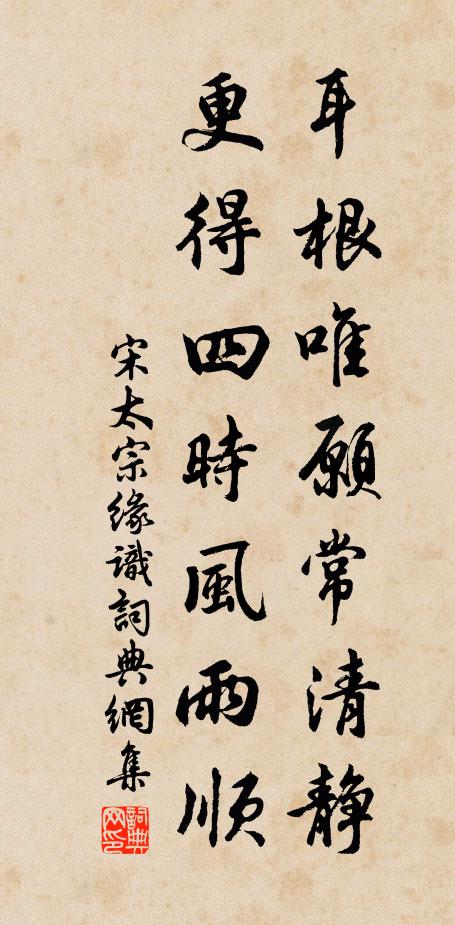 耳根唯願常清静
更得四時風雨順
宋太宗緣識詞典網集
詞典
网印